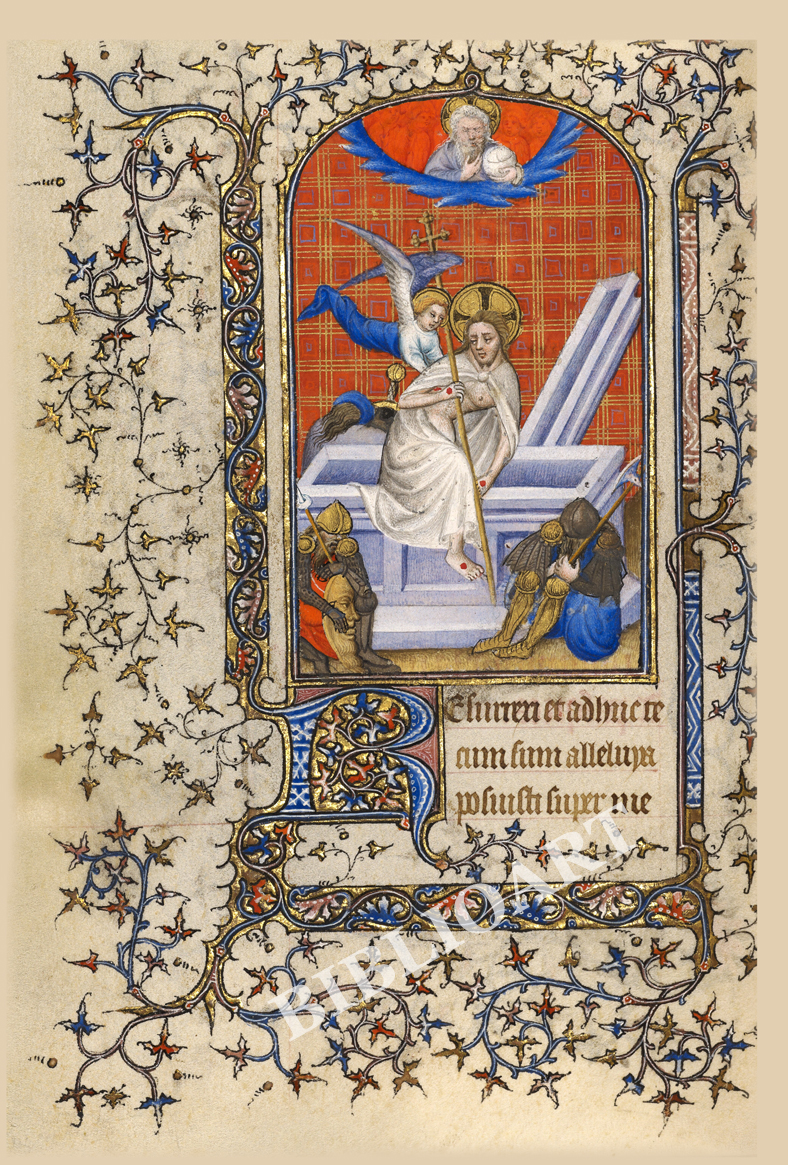 Resurrexi et adhuc te
cum sum alleluya
posuisti super me
BIBLIOART